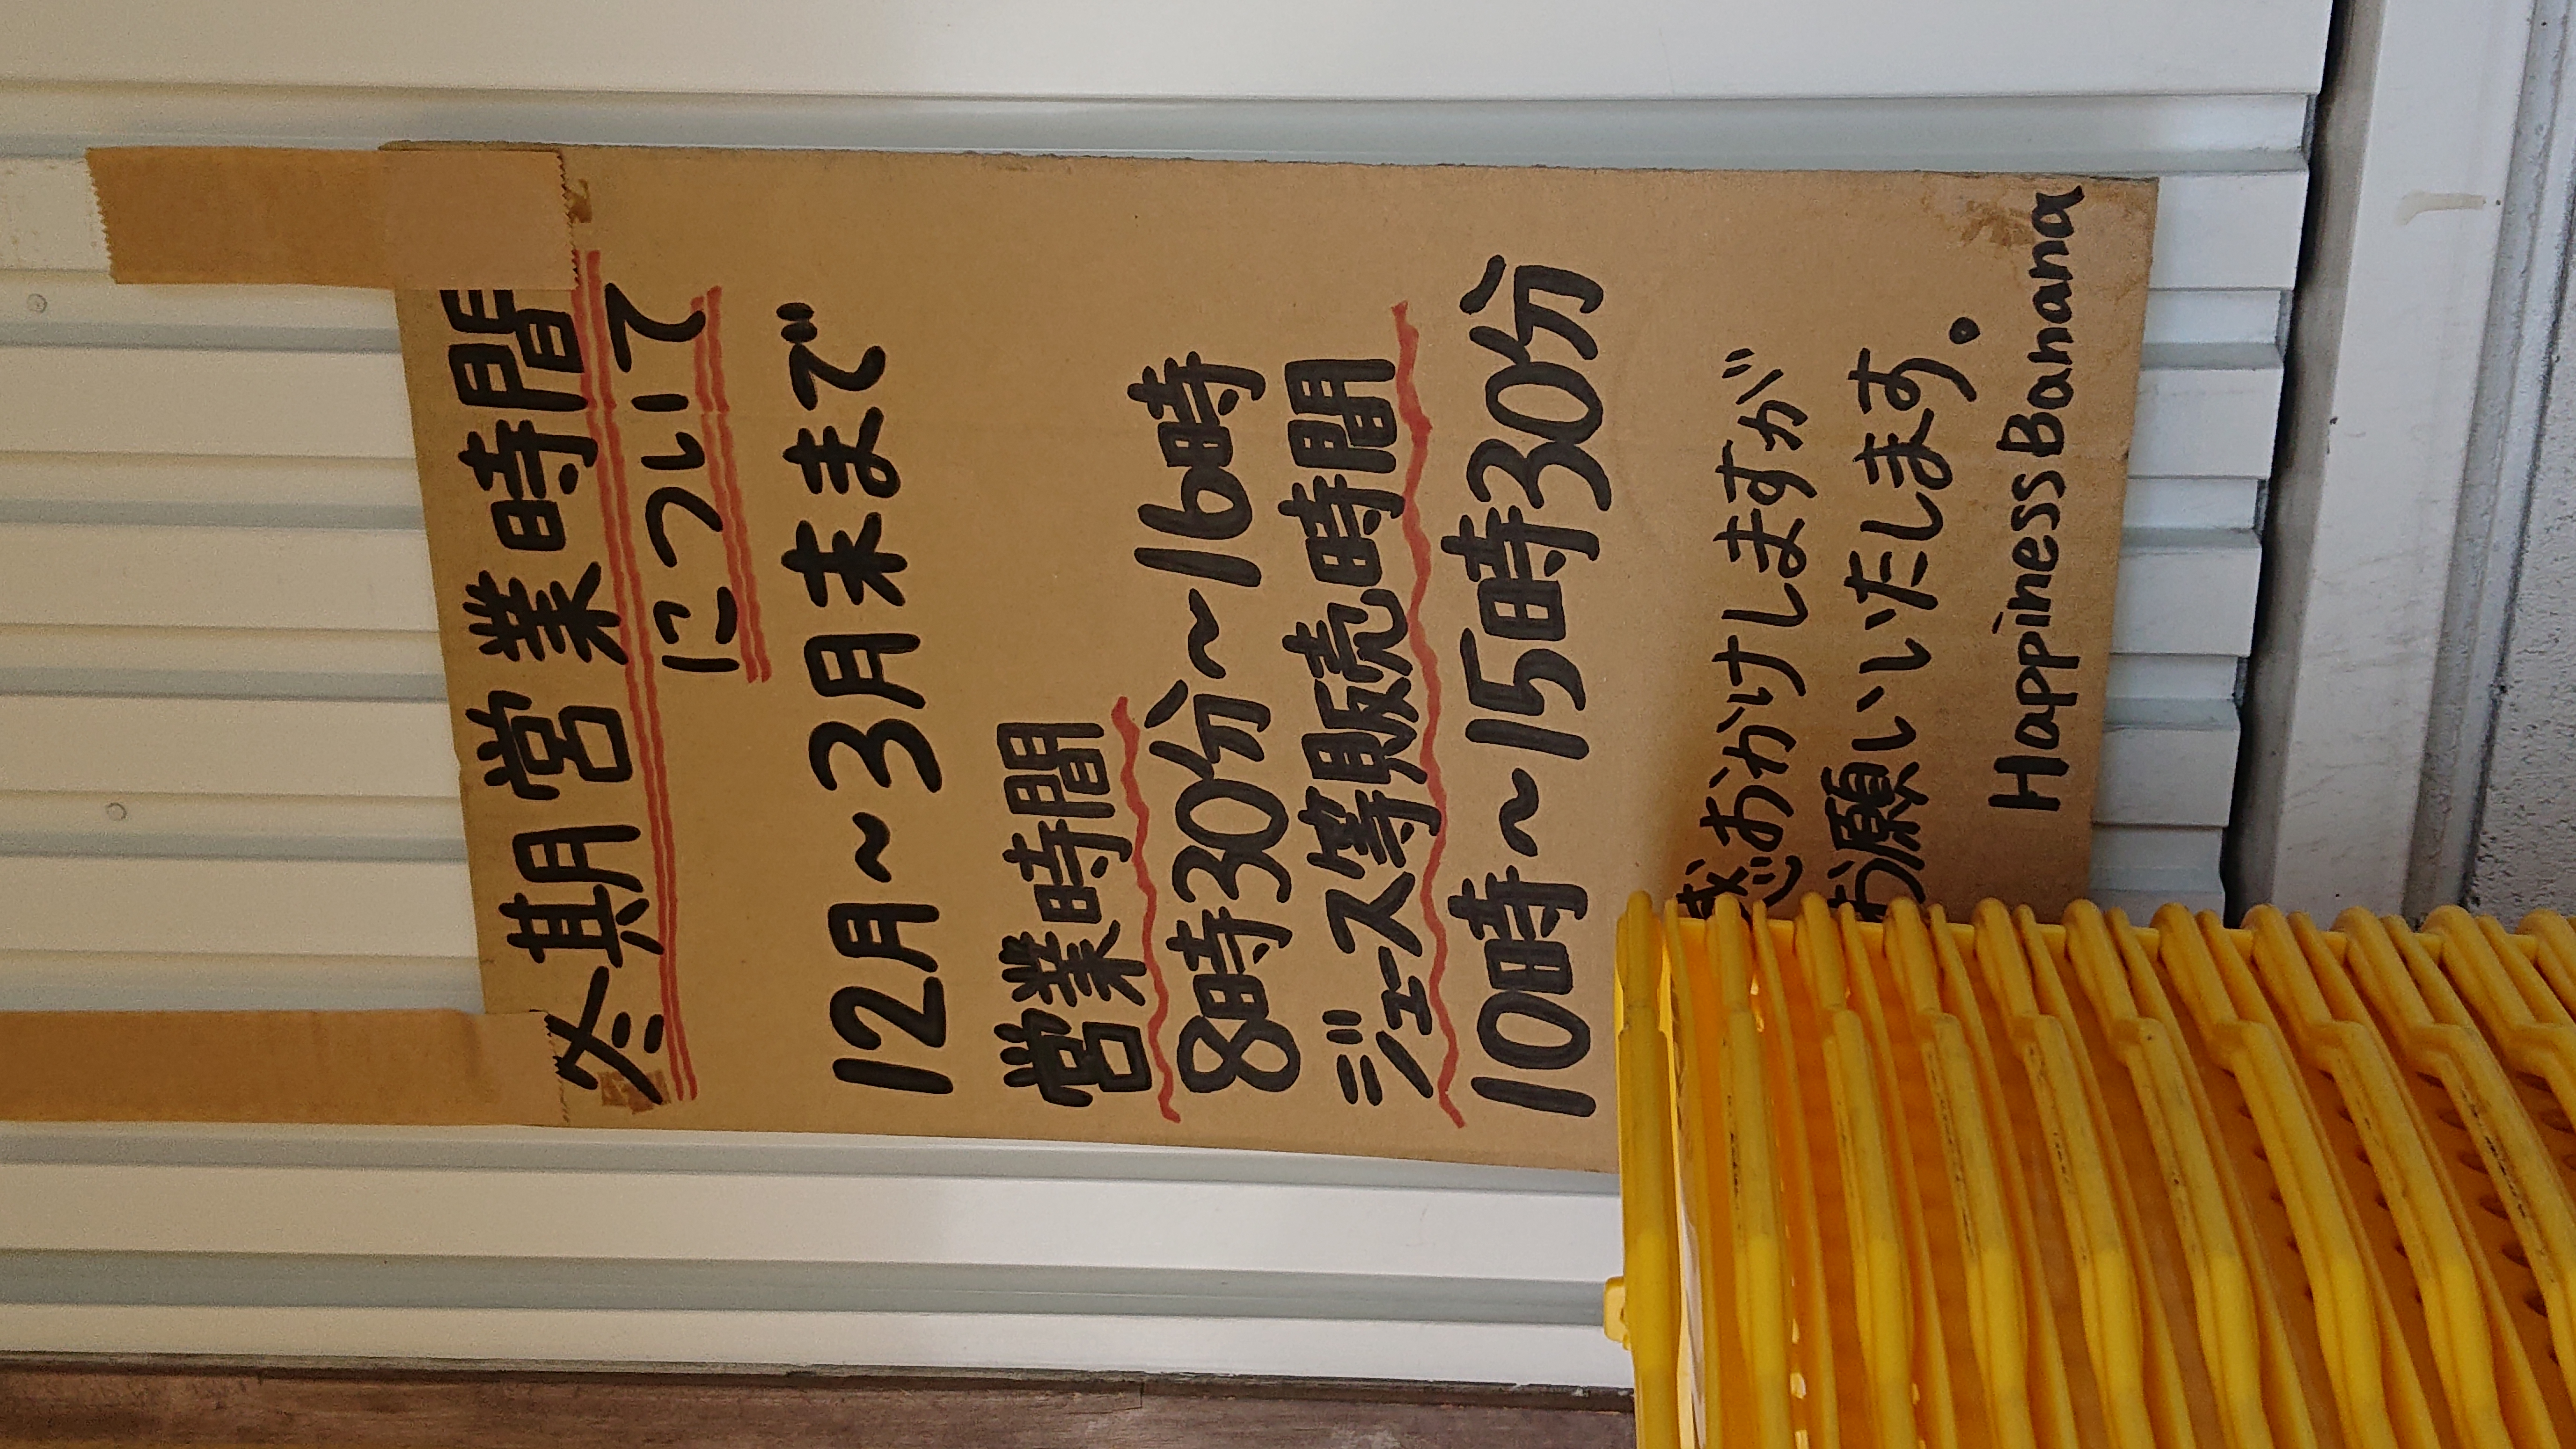 冬期営業時間
について
12月〜3月末まで
営業時間
8時30分〜16時
ジュース等販売時間
10時〜15時30分
惑おかけしますが
お願いいたします。
Happiness Banana